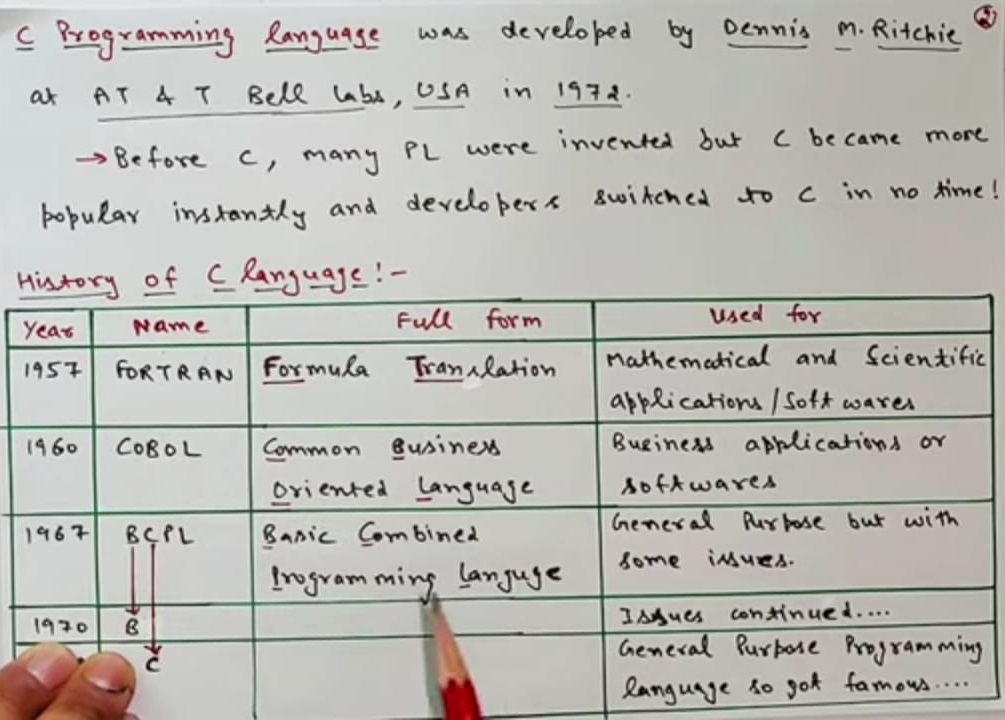 C Programming language was developed by Dennis M. Ritchie
2
at AT & T Bell Labs, USA in 1972.
→ Before C, many PL were invented but C became more
popular instantly and developers switched to C in no time!
History of C language:-
Year Name Full form Used for
1957 FORTRAN Formula Translation Mathematical and Scientific
applications / Softwares
1960 COBOL Common Business Business applications or
Oriented Language softwares
1967 BCPL Basic Combined General Purpose but with
Programming Languge some issues.
1970 B Issues continued....
C General Purpose Programming
language so got famous....